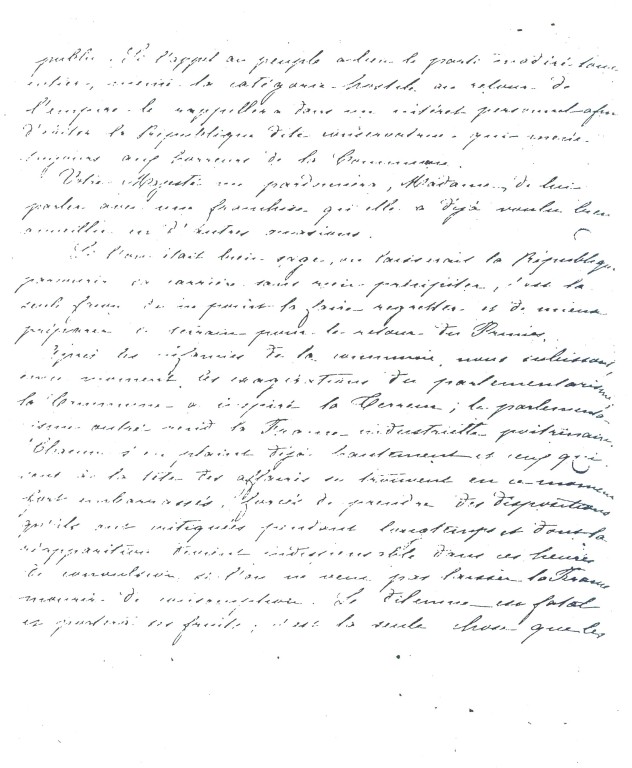 public. Si l'appel au peuple a lieu le parti modéré tout
entier, même la catégorie hostile au retour de
l'empire le rappellera dans un intérêt personnel afin
d'éviter la République dite conservatrice qui mène
toujours aux horreurs de la Commune.
Votre Majesté me pardonnera, Madame, de lui
parler avec une franchise qu'elle a déjà voulu bien
accueillir en d'autres occasions.
Si l'on était bien sage, on laisserait la République
parcourir sa carrière sans rien précipiter, c'est la
seule façon de ne point la faire regretter et de mieux
préparer le terrain pour le retour du Prince.
Après les infamies de la commune, nous subissons
en ce moment, les exagérations du parlementarisme,
la Commune a inspiré la Terreur; le parlementa-
risme outré rend la France industrielle poitrinaire.
Chacun s'en plaint déjà hautement et ceux qui
sont à la tête des affaires se trouvent en ce moment
fort embarrassés, forcés de prendre des dispositions
qu'ils ont critiquées pendant longtemps et dont la
réapparition devient indispensable dans ces heures
de convulsion si l'on ne veut pas laisser la France
mourir de consomption. Le dilemme est fatal
et portera ses fruits; c'est la seule chose que les